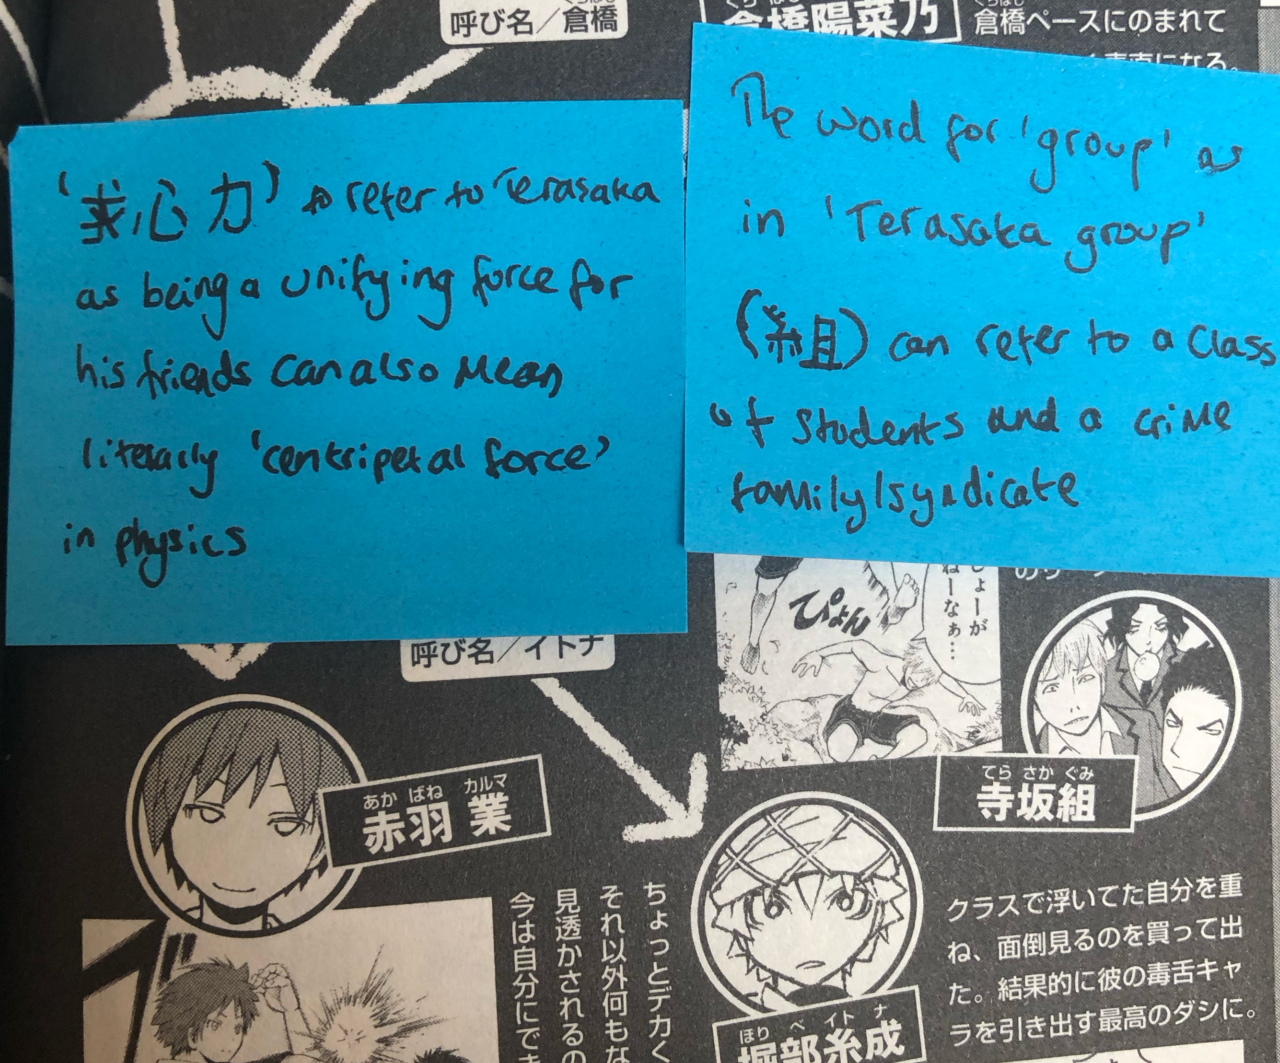 呼び名／倉橋
倉橋陽菜乃
倉橋ペースにのまれて
'求心力' to refer to Terasaka
as being a unifying force for
his friends can also mean
literally 'centripetal force'
in physics
The word for 'group' as
in 'Terasaka group'
(組) can refer to a class
of students and a crime
family/syndicate
呼び名／イトナ
ぴょん
しょーが
ねーなぁ…
てら さか ぐみ
寺坂組
あか ばね カルマ
赤羽 業
ちょっとデカく
それ以外何もな
見透かされるの
今は自分にでき
ほり べ イトナ
堀部糸成
クラスで浮いてた自分を重
ね、面倒見るのを買って出
た。結果的に彼の毒舌キャ
ラを引き出す最高のダシに。